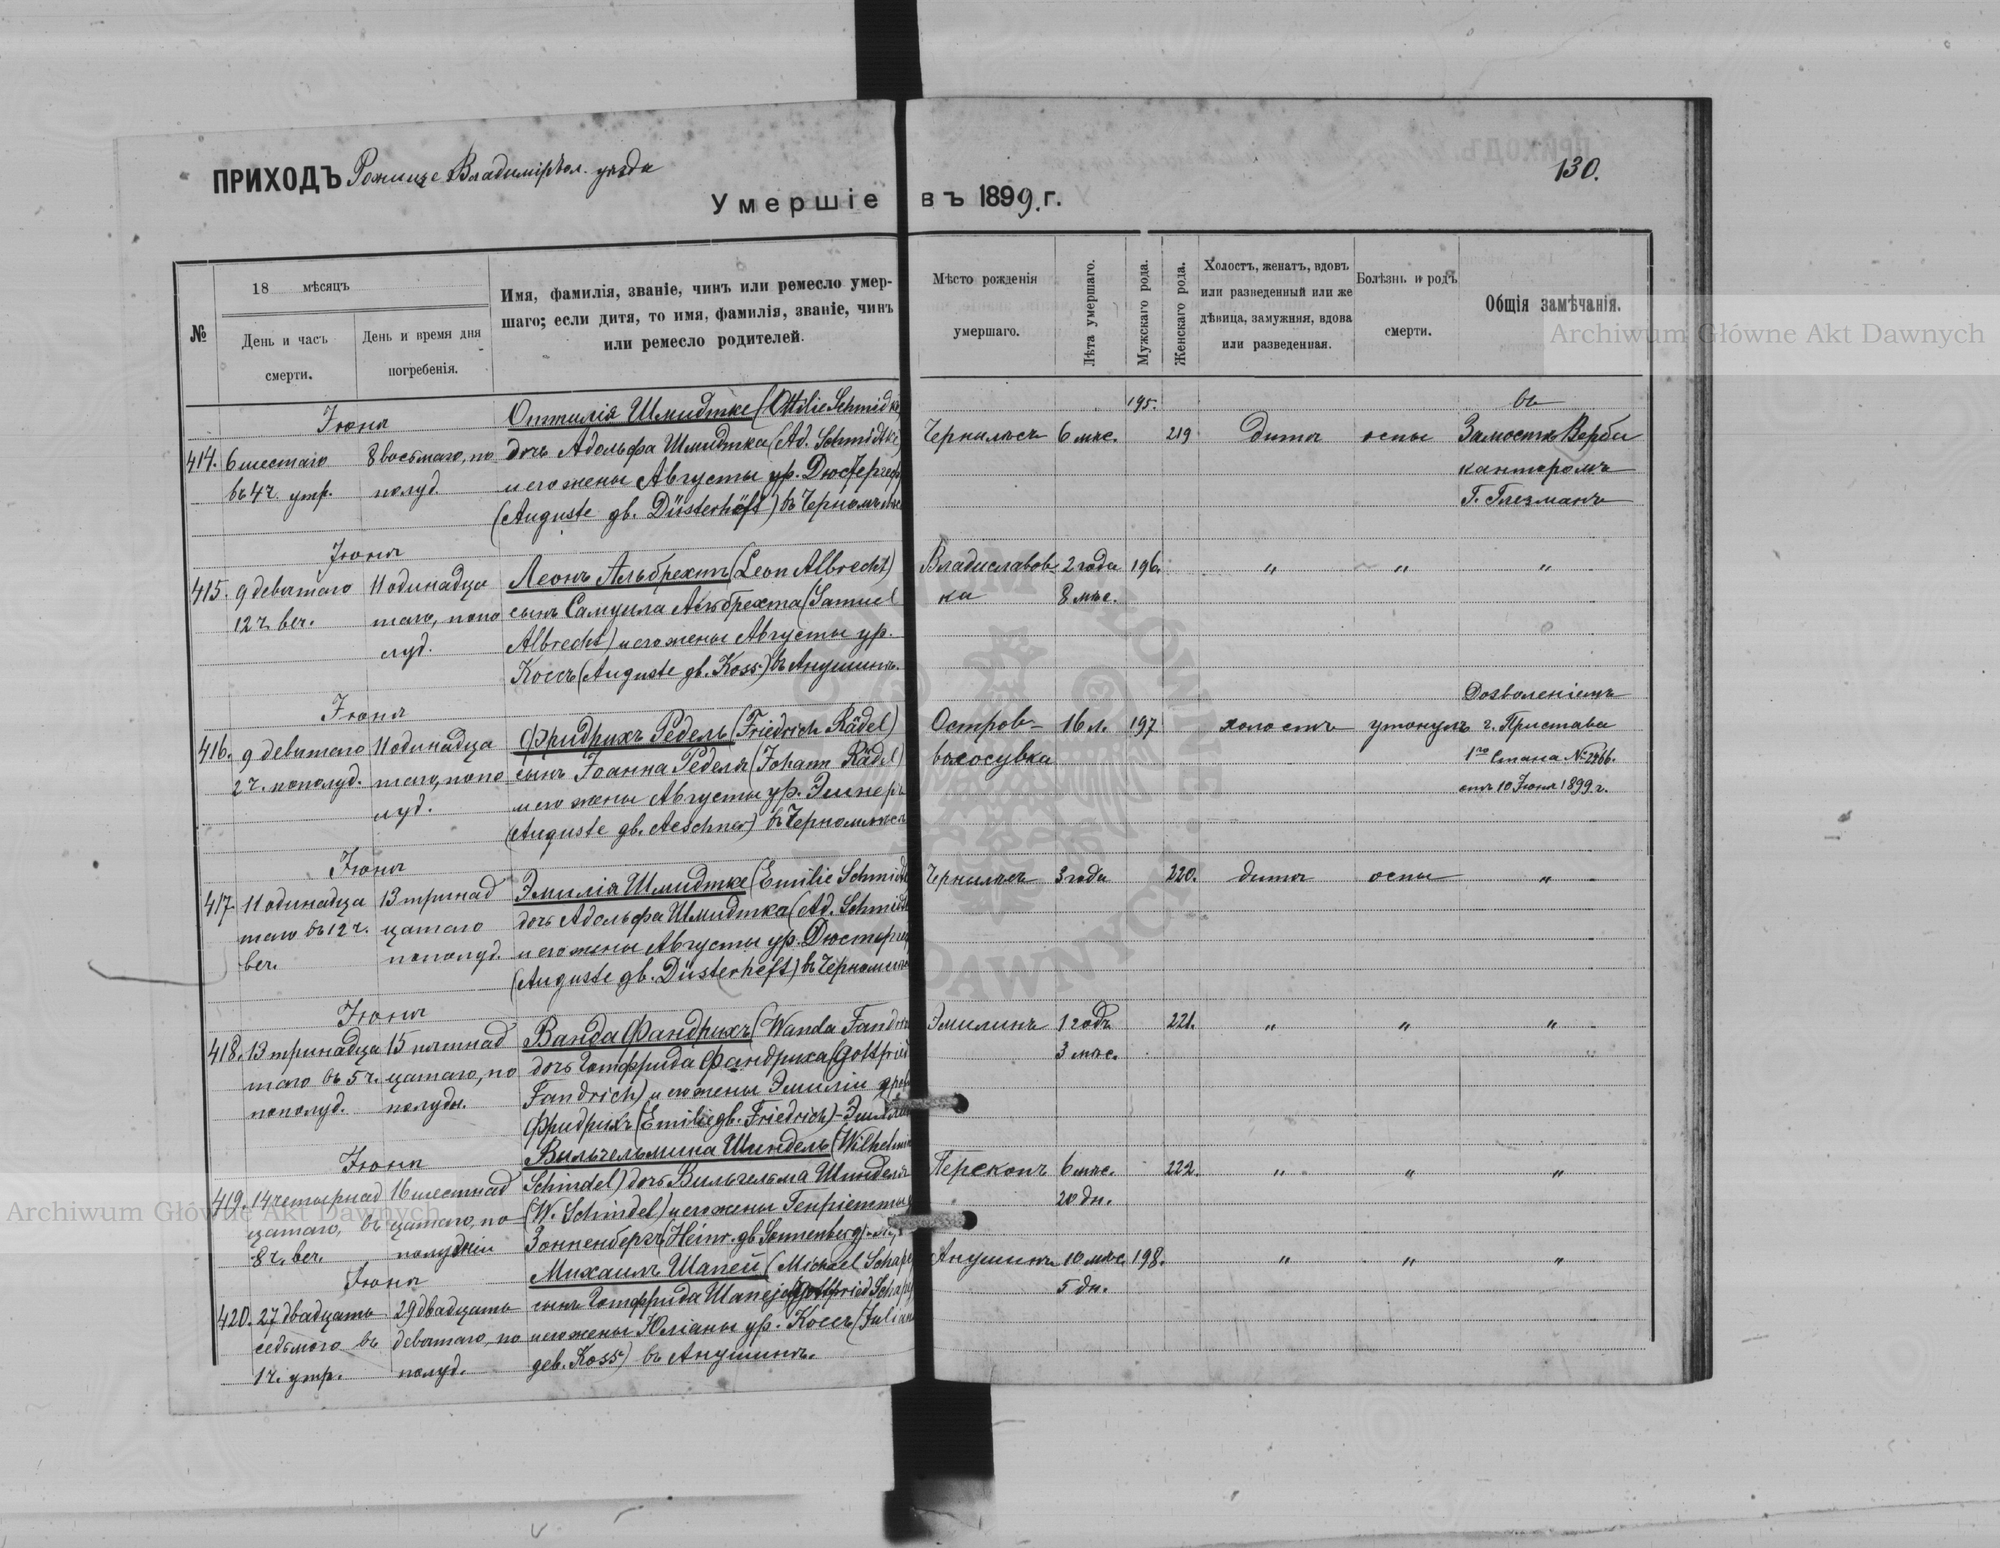 ПРИХОДЪ Рожище Владимірвол. уѣзда
130.
Умершіе въ 1899 г.
№
18 мѣсяцъ
День и часъ смерти.
День и время дня погребенія.
Имя, фамилія, званіе, чинъ или ремесло умер-
шаго; если дитя, то имя, фамилія, званіе, чинъ
или ремесло родителей.
Мѣсто рожденія умершаго.
Лѣта умершаго.
Мужскаго рода.
Женскаго рода.
Холостъ, женатъ, вдовъ
или разведенный или же
дѣвица, замужняя, вдова
или разведенная.
Болѣзнь и родъ смерти.
Общія замѣчанія.
Archiwum Główne Akt Dawnych
Іюня Оттилія Шмидтке (Ottilie Schmidke 195. въ
414. 6 шестаго 8 восьмаго, по дочь Адольфа Шмидтка (Ad. Schmidtke) 6 мѣс. 219 дитя оспы
въ 4 ч. утр. полуд. и его жены Августы ур. канторомъ
(Auguste gb. Düsterhöft) въ Г.
Іюня
415. 9 девятаго 11 одинадца Леонъ Альбрехтъ (Leon Albrecht) Владиславов- 2 года 196. " " "
12 ч. веч. таго, попо сынъ Самуила Альбрехта (Samuel ка 8 мѣс.
луд. Albrecht) и его жены Августы ур.
Коссъ (Auguste gb. Koss) въ Анушинѣ.
Іюня Дозволеніемъ
416. 9 девятаго 11 одинадца Фридрихъ Редель (Friedrich Rädel) Остров- 16 л. 197 холостъ утонулъ г. Пристава
2 ч. пополуд. таго, попо сынъ ІоаннаРеделя (Johann Rädel) 1го Стана №2366.
луд. и его жены Августы ур. Эшнеръ отъ 10 Іюня 1899 г.
(Auguste gb. Aeschner) въ
Іюня
417. 11 одинадца 13 тринад Эмилія Шмидтке (Emilie Schmidt 3 года 220. дитя оспы "
таго въ 12 ч. цатаго дочь Адольфа Шмидтка (Ad. Schmidt
веч. пополуд. и его жены Августы ур.
(Auguste gb. Düsterheft) въ
Іюня
418. 13 тринадца 15 пятнад Ванда Фандрихъ (Wanda Fandri Эмилинъ 1 годъ 221. " " "
таго въ 5 ч. цатаго, по дочь Готфрида Фандриха (Gottfried 3 мѣс.
пополуд. полудн. Fandrich) и его жены Эмиліи
Фридрихъ (Emilie gb. Friedrich)
Іюня Вильгельмина Шиндель (Wilhelmin
419. 14 четырнад 16 шестнад Schindel) дочь Вильгельма Шинделя Перекопъ 6 мѣс. 222. " " "
цатаго, въ цатаго, по (W. Schindel) и его жены Генріетты 20 дн.
8 ч. веч. полудни Зонненбергъ (Heinr. gb. Sonnenberg)
Archiwum Główne Akt Dawnych
Іюня Михаилъ Шапей (Michael Schape Анушинъ 10 мѣс. 198. " " "
420. 27 двадцать 29 двадцать сынъ Готфрида Шапея (Gottfried Schape 5 дн.
седьмого въ девятаго, по и его жены Юліаны ур. Коссъ (Julian
1 ч. утр. полуд. geb. Koss) въ Анушинѣ.